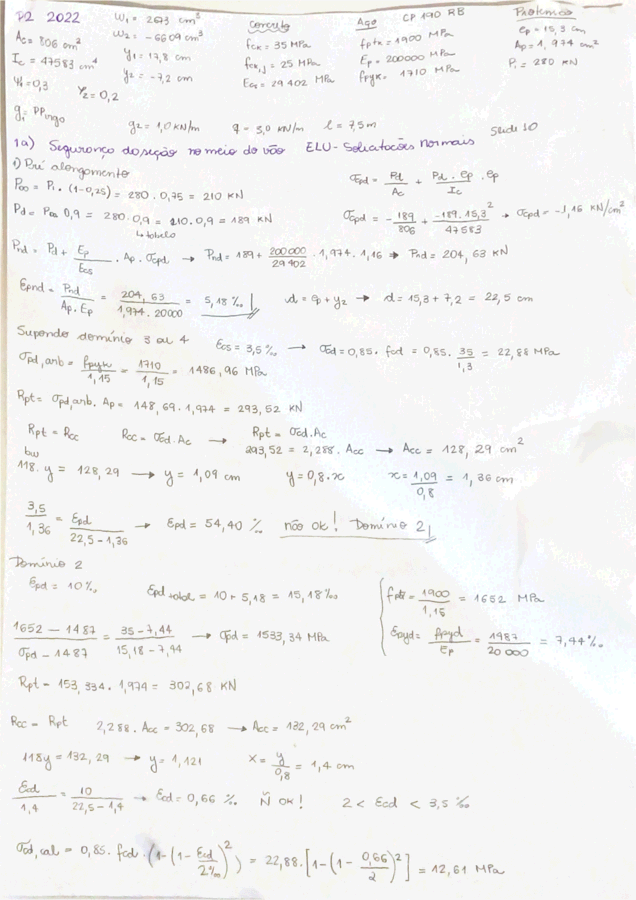 P2 2022
W1 = 2673 cm³
W2 = -6609 cm³
y1 = 17,8 cm
y2 = -7,2 cm
Ac = 806 cm²
Ic = 47583 cm⁴
ψ1 = 0,3 ψ2 = 0,2
Concreto
fck = 35 MPa
fck,j = 25 MPa
Ecs = 29402 MPa
Aço CP 190 RB
fptk = 1900 MPa
Ep = 200000 MPa
fpyk = 1710 MPa
Protensão
ep = 15,3 cm
Ap = 1,974 cm²
Pi = 280 KN
g2 = 1,0 KN/m q = 3,0 KN/m l = 7,5 m
Slide 10
1a) Segurança da seção no meio do vão ELU - Solicitações Normais
1) Pré alongamento
P∞ = Pi . (1-0,25) = 280 . 0,75 = 210 KN
σcpd = Pd/Ac + Pd . ep/Ic . ep
Pd = P∞ 0,9 = 280 . 0,9 = 210 . 0,9 = 189 KN
↳ tabela
σcpd = -189/806 + -189 . 15,3²/47583 → σcpd = -1,16 KN/cm²
Pnd = Pd + Ep/Ecs . Ap . σcpd → Pnd = 189 + 200000/29402 . 1,974 . 1,16 → Pnd = 204,63 KN
Epnd = Pnd/Ap . Ep = 204,63/1,974 . 20000 = 5,18‰
d = ep + y2 → d = 15,3 + 7,2 = 22,5 cm
Supondo domínio 3 ou 4 Ecs = 3,5‰ → σcd = 0,85 . fcd = 0,85 . 35/1,3 = 22,88 MPa
σpd,arb = fpyk/1,15 = 1710/1,15 = 1486,96 MPa
Rpt = σpd,arb . Ap = 148,69 . 1,974 = 293,52 KN
Rpt = Rcc Rcc = σcd . Ac → Rpt = σcd . Ac
293,52 = 2,288 . Acc → Acc = 128,29 cm²
bw
118 . y = 128,29 → y = 1,09 cm y = 0,8 . x x = 1,09/0,8 = 1,36 cm
3,5/1,36 = Epd/22,5 - 1,36 → Epd = 54,40‰ não ok! Domínio 2
Domínio 2
Epd = 10‰ Epd total = 10 + 5,18 = 15,18‰
fptd = 1900/1,15 = 1652 MPa
Epyd = fpyd/Ep = 1987/20000 = 7,44‰
1652 - 1487/σpd - 1487 = 35 - 7,44/15,18 - 7,44 → σpd = 1533,34 MPa
Rpt = 153,334 . 1,974 = 302,68 KN
Rcc = Rpt 2,288 . Acc = 302,68 → Acc = 132,29 cm²
118y = 132,29 → y = 1,121 x = y/0,8 = 1,4 cm
Ecd/1,4 = 10/22,5 - 1,4 → Ecd = 0,66‰ Ñ OK! 2 < Ecd < 3,5‰
σcd,cal = 0,85 . fcd . (1-(1 - Ecd/2‰)²) = 22,88 . [1-(1 - 0,66/2)²] = 12,61 MPa